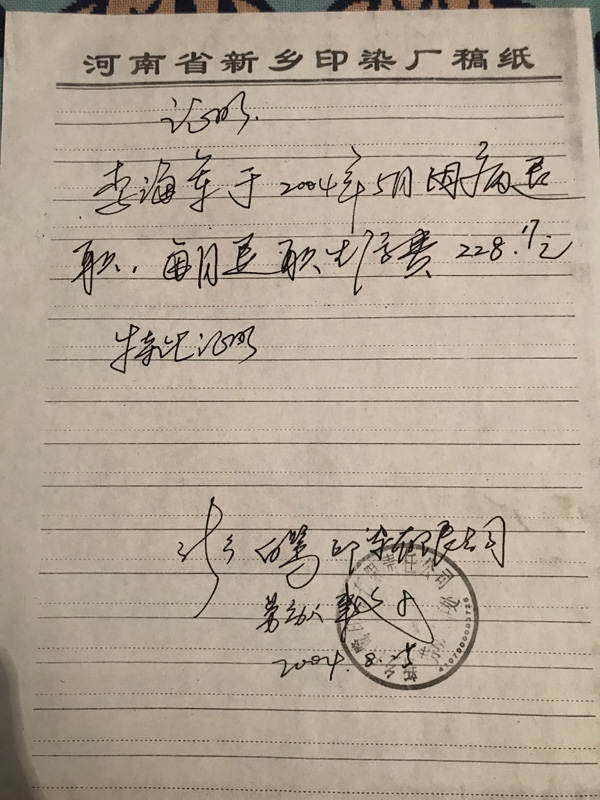 河南省新乡印染厂稿纸
证明.
李海军于2004年5月因病退
职，每月退职生活费228.17元
特此证明
白鹭印染有限公司
劳动人事
2004.8.25
责任公司